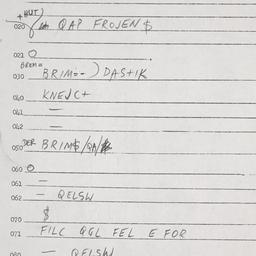 + HUT)
020 QAP FROJEN $
021 O
BREM=
030 BRIM=-) DASTIK
040 KNEJC+
041 =
042 =
050 DER BRIM$/QA/
060 O
061 =
062 - QELSW
070 $
071 FILC QGL FEL E FOR
080 - QELSW